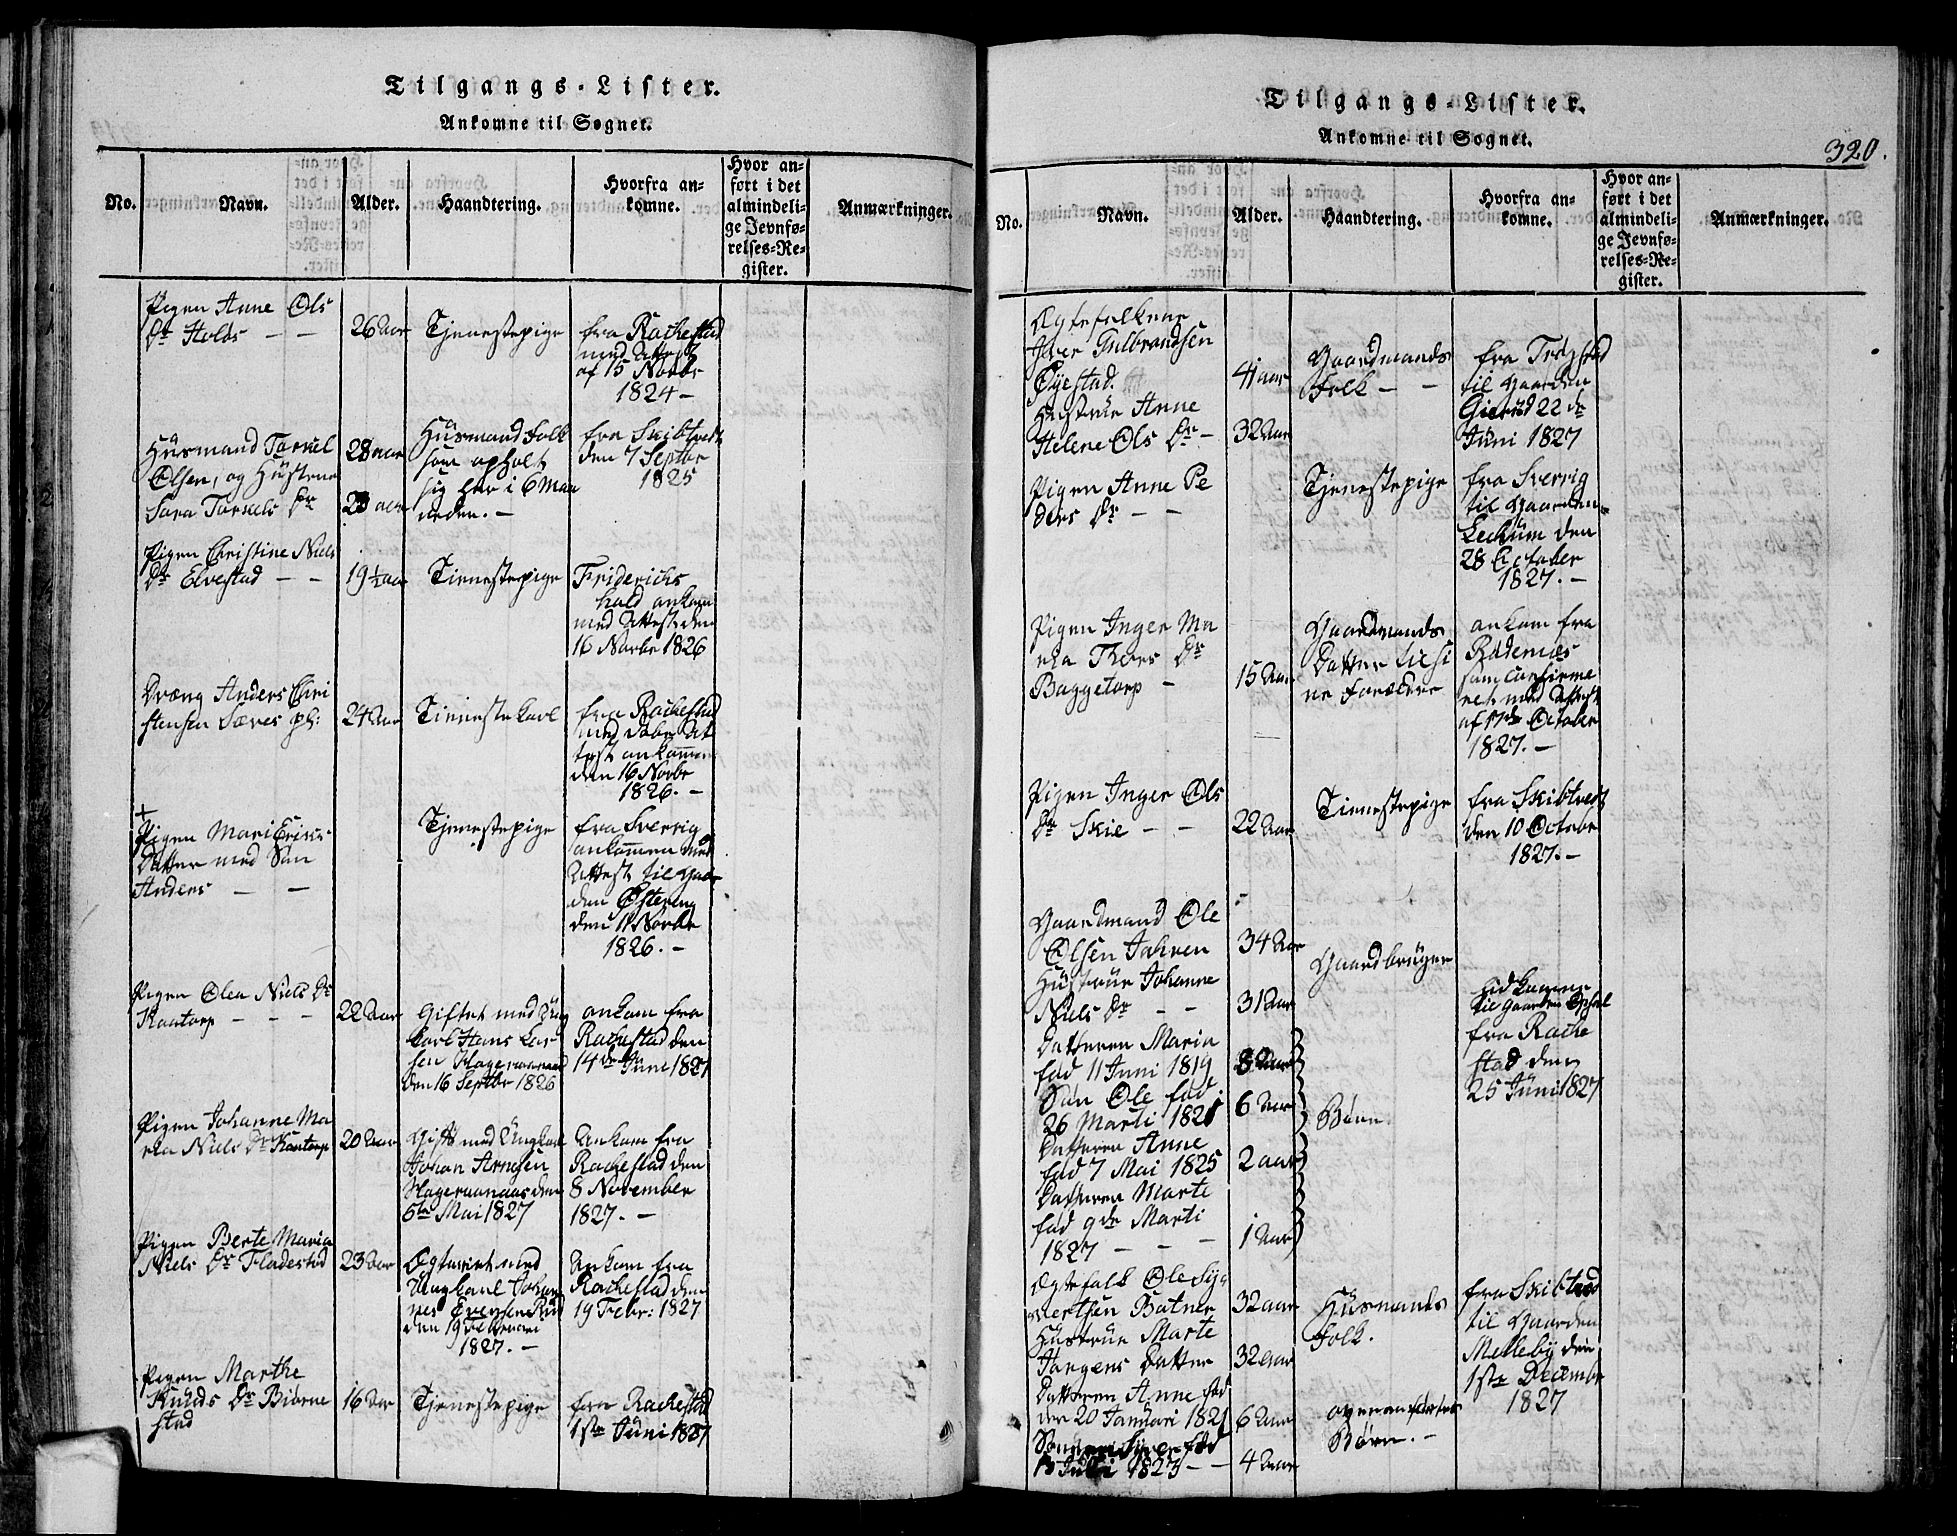 Tilgangs-Lister.
Ankomne til Sognet.
No.
Navn.
Alder.
Haandtering.
Hvorfra an-
komne.
Hvor an-
ført i det
almindeli-
ge Jevnfø-
relses-Re-
gister.
Anmærkninger.
Pigen Anne Ols
Dr Holds – –
26 Aar
Tjenestepige
fra Rachestad
med Attest
af 15 Novbr
1824 –
Huusmand Torkel
Olsen, og Hustrue
Sara Torkels Dr
28 aar
23 aar
Huusmand Folk
som opholt
sig her i 6 Maa
neder. –
fra Skibtvedt
den 7 Septbr
1825
Pigen Christine Niels
Dr Elvestad – –
19½ aar
Tienestepige
Friderichs
hald ankom
med Attest den
16 Novbr 1826
Dræng Anders Chri
stensen Sæves pl:
24 Aar
Tienestekarl
fra Rachestad
med Attest
ankommen
den 16 Novbr
1826. –
Pigen Mari Eriks
Datter med Søn
Anders – –
Tjenestepige
fra Sverrig
ankommen med
Attest til Gaar
den Østereng
den 11 Novbr
1826. –
Pigen Olea Niels Dr
Kaatorp – – –
22 Aar
Giftet med Ung
karl Hans Lar
sen Hageraanaas
den 16 Septbr 1826
ankom fra
Rachestad den
14de Juni 1827
Pigen Johanne Ma
ria Niels Dr Kaatorp
20 Aar
Gift med Ungkarl
Johan Arnesen
Hageraanaas den
5te Mai 1827
Ankom fra
Rachestad den
8 November
1827. –
Pigen Berte Maria
Niels Dr Fladestad
23 Aar
Ægteviet med
Ungkarl Johan
nes Evensen Rud
den 19 Februari
1827. –
Ankom fra
Rachestad den
19 Febr: 1827
Pigen Marthe
Knuds Dr Biørne
stad
16 Aar
Tjenestepige
fra Rachestad
1ste Juni 1827
Tilgangs-Lister.
Ankomne til Sognet.
320.
No.
Navn.
Alder.
Haandtering.
Hvorfra an-
komne.
Hvor an-
ført i det
almindeli-
ge Jevnfø-
relses-Re-
gister.
Anmærkninger.
Ægtefolkene
Iver Gulbrandsen
Øyestad.
Hustrue Anne
Helene Ols Dr –
41 aar
32 Aar
Gaardmands
Folk – –
fra Trøgstad
til Gaarden
Gierud 22de
Juni 1827
Pigen Anne Pe
ders Dr – –
Tjenestepige
fra Sverrig
til Gaarden
Lechum den
28 October
1827. –
Pigen Inger Ma
ria Thores Dr
Baggetorp –
15 Aar
Gaardmands
Datter til si
ne Forældre
ankom fra
Rødenæs
som confirme
ret med Attest
af 17de October
1827. –
Pigen Inger Ols
Dr Skie – –
22 Aar
Tienestepige
fra Skibtvedt
den 10 Octobr
1827. –
Gaardmand Ole
Olsen Jahren
Hustrue Johanne
Niels Dr – –
Datteren Maria
fød 11 Juni 1819
Søn Ole fød
26 Marti 1821
Datteren Anne
fød 7 Mai 1825
Datteren Marte
fød 9de Marti
1827 – – –
34 Aar
31 Aar
8 Aar
6 Aar
2 aar
1 Aar
Gaardbruger
Børn.
til Gaarden
fra Rache
stad den
25 Juni 1827
Ægtefolk Ole Syg
vertsen Batner
Hustrue Marte
Jørgens Datter
Datteren Anne fød
den 20 Januari 1821
Sønnen Syver fød
Juli 1823 – –
32 aar
32 aar
6 Aar
4 Aar
Huusmands
Folk.
ovenanførtes
Børn. –
fra Skibtved
til Gaarden
Melleby den
1ste Decembr
1827